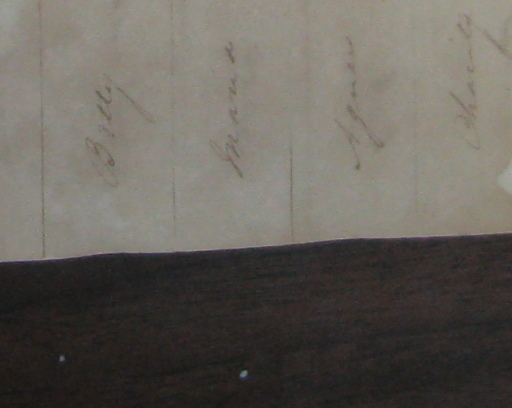 Betty
Maria
Agnes
Charity